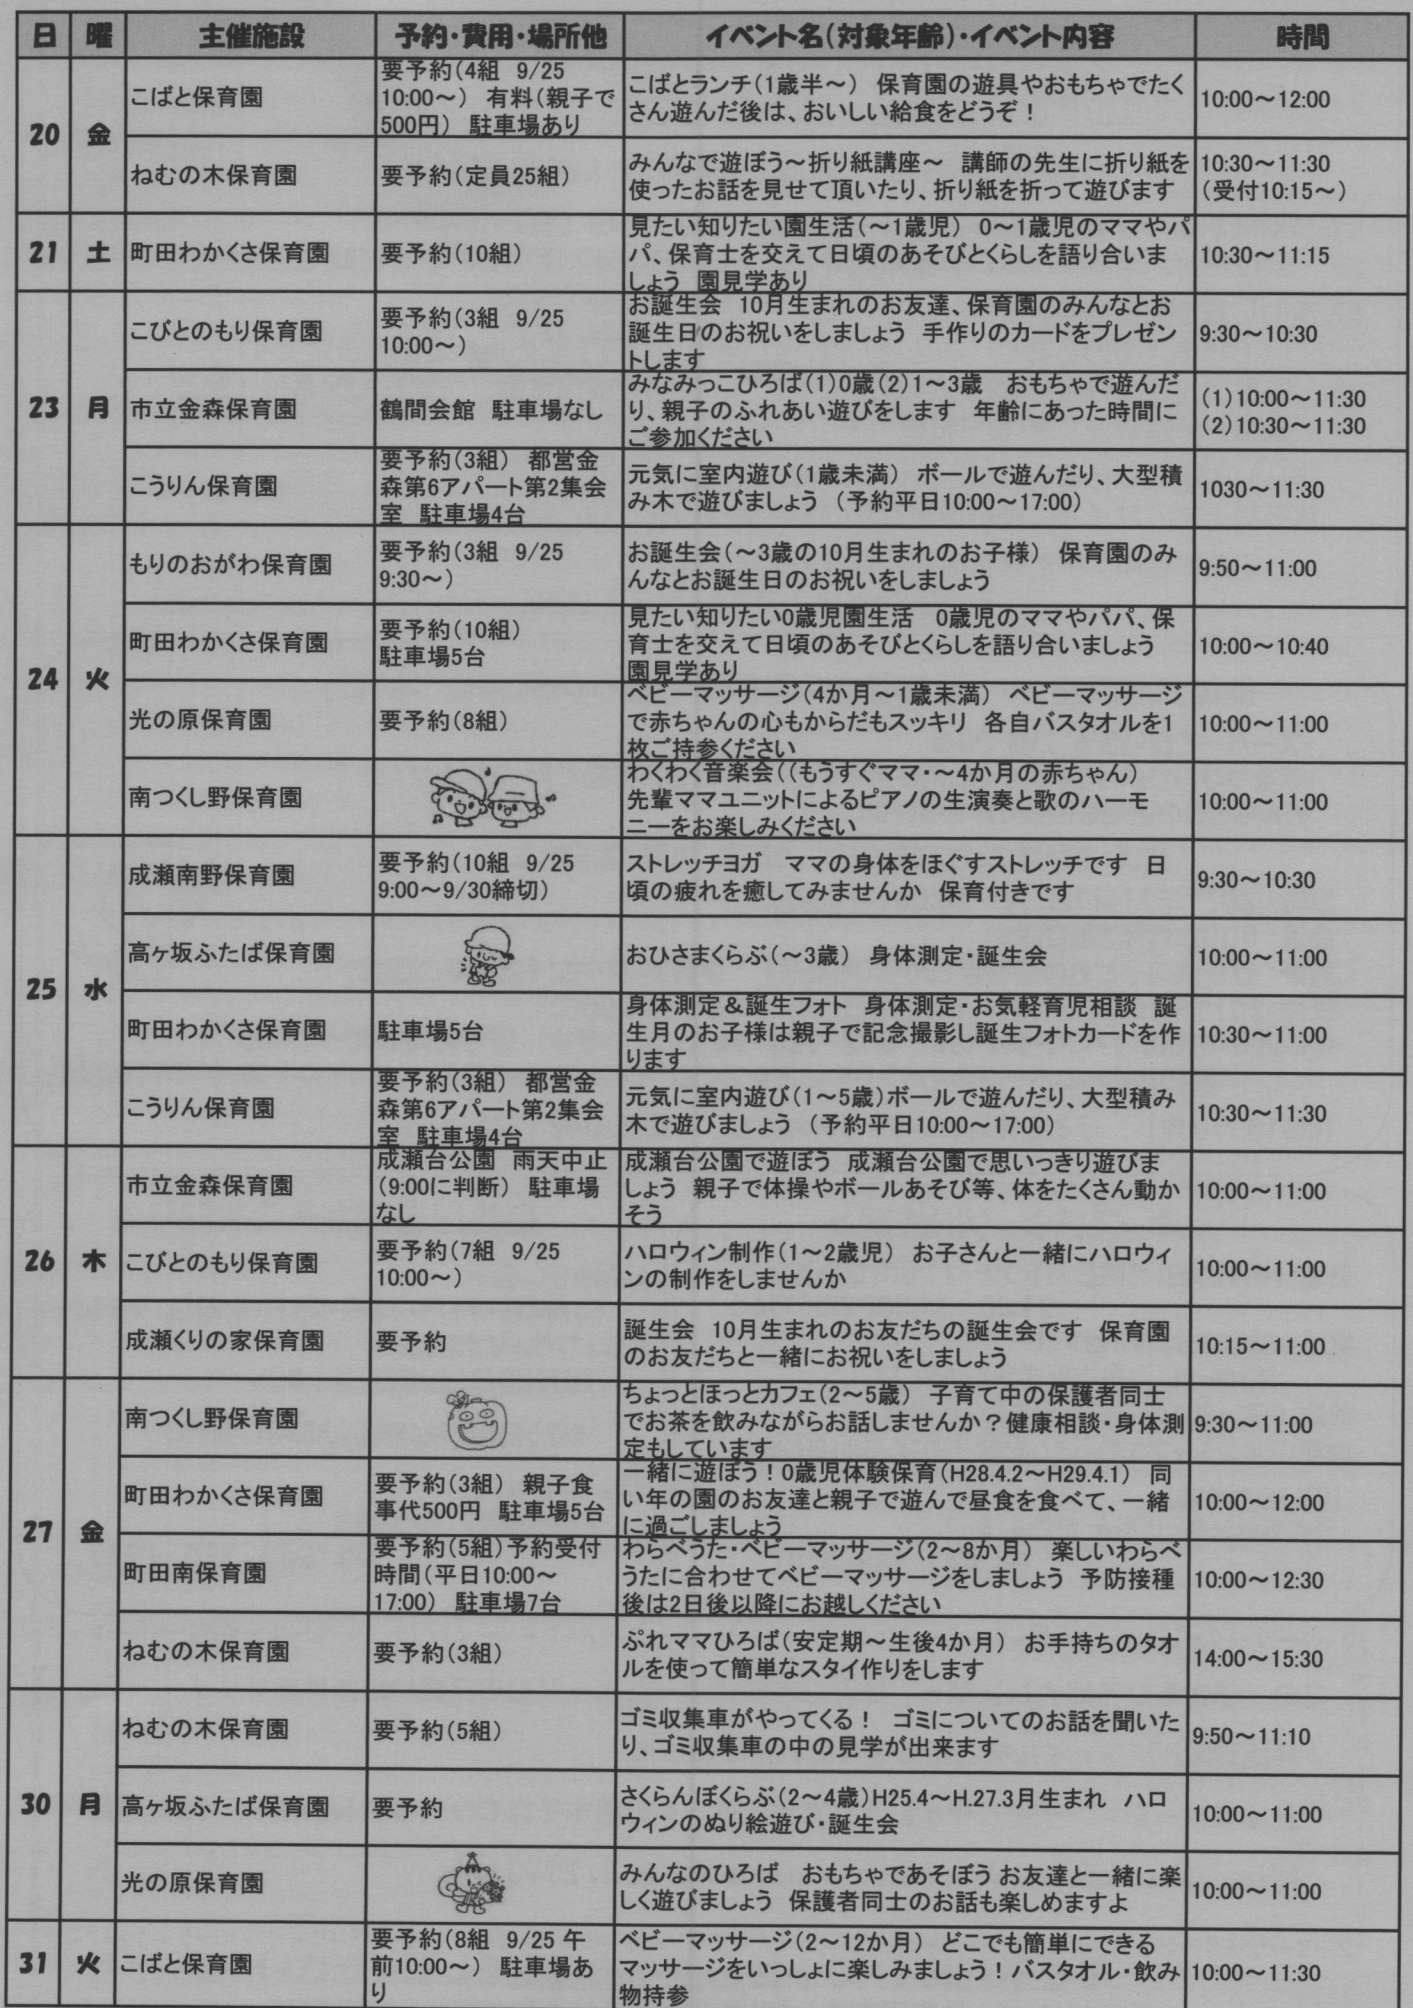 日 曜 主催施設 予約・費用・場所他 イベント名(対象年齢)・イベント内容 時間
20 金
こばと保育園
要予約(4組 9/25
10:00～) 有料(親子で
500円) 駐車場あり
こばとランチ(1歳半～) 保育園の遊具やおもちゃでたく
さん遊んだ後は、おいしい給食をどうぞ！
10:00～12:00
ねむの木保育園
要予約(定員25組)
みんなで遊ぼう～折り紙講座～ 講師の先生に折り紙を
使ったお話を見せて頂いたり、折り紙を折って遊びます
10:30～11:30
(受付10:15～)
21 土
町田わかくさ保育園
要予約(10組)
見たい知りたい園生活(～1歳児) 0～1歳児のママやパ
パ、保育士を交えて日頃のあそびとくらしを語り合いま
しょう 園見学あり
10:30～11:15
23 月
こびとのもり保育園
要予約(3組 9/25
10:00～)
お誕生会 10月生まれのお友達、保育園のみんなとお
誕生日のお祝いをしましょう 手作りのカードをプレゼン
トします
9:30～10:30
市立金森保育園
鶴間会館 駐車場なし
みなみっこひろば(1)0歳(2)1～3歳 おもちゃで遊んだ
り、親子のふれあい遊びをします 年齢にあった時間に
ご参加ください
(1)10:00～11:30
(2)10:30～11:30
こうりん保育園
要予約(3組) 都営金
森第6アパート第2集会
室 駐車場4台
元気に室内遊び(1歳未満) ボールで遊んだり、大型積
み木で遊びましょう (予約平日10:00～17:00)
1030～11:30
24 火
もりのおがわ保育園
要予約(3組 9/25
9:30～)
お誕生会(～3歳の10月生まれのお子様) 保育園のみ
んなとお誕生日のお祝いをしましょう
9:50～11:00
町田わかくさ保育園
要予約(10組)
駐車場5台
見たい知りたい0歳児園生活 0歳児のママやパパ、保
育士を交えて日頃のあそびとくらしを語り合いましょう
園見学あり
10:00～10:40
光の原保育園
要予約(8組)
ベビーマッサージ(4か月～1歳未満) ベビーマッサージ
で赤ちゃんの心もからだもスッキリ 各自バスタオルを1
枚ご持参ください
10:00～11:00
南つくし野保育園
わくわく音楽会((もうすぐママ・～4か月の赤ちゃん)
先輩ママユニットによるピアノの生演奏と歌のハーモ
ニーをお楽しみください
10:00～11:00
25 水
成瀬南野保育園
要予約(10組 9/25
9:00～9/30締切)
ストレッチヨガ ママの身体をほぐすストレッチです 日
頃の疲れを癒してみませんか 保育付きです
9:30～10:30
高ヶ坂ふたば保育園
おひさまくらぶ(～3歳) 身体測定・誕生会
10:00～11:00
町田わかくさ保育園
駐車場5台
身体測定＆誕生フォト 身体測定・お気軽育児相談 誕
生月のお子様は親子で記念撮影し誕生フォトカードを作
ります
10:30～11:00
こうりん保育園
要予約(3組) 都営金
森第6アパート第2集会
室 駐車場4台
元気に室内遊び(1～5歳)ボールで遊んだり、大型積み
木で遊びましょう (予約平日10:00～17:00)
10:30～11:30
26 木
市立金森保育園
成瀬台公園 雨天中止
(9:00に判断) 駐車場
なし
成瀬台公園で遊ぼう 成瀬台公園で思いっきり遊びま
しょう 親子で体操やボールあそび等、体をたくさん動か
そう
10:00～11:00
こびとのもり保育園
要予約(7組 9/25
10:00～)
ハロウィン制作(1～2歳児) お子さんと一緒にハロウィ
ンの制作をしませんか
10:00～11:00
成瀬くりの家保育園
要予約
誕生会 10月生まれのお友だちの誕生会です 保育園
のお友だちと一緒にお祝いをしましょう
10:15～11:00
27 金
南つくし野保育園
ちょっとほっとカフェ(2～5歳) 子育て中の保護者同士
でお茶を飲みながらお話しませんか？健康相談・身体測
定もしています
9:30～11:00
町田わかくさ保育園
要予約(3組) 親子食
事代500円 駐車場5台
一緒に遊ぼう！0歳児体験保育(H28.4.2～H29.4.1) 同
い年の園のお友達と親子で遊んで昼食を食べて、一緒
に過ごしましょう
10:00～12:00
町田南保育園
要予約(5組)予約受付
時間(平日10:00～
17:00) 駐車場7台
わらべうた・ベビーマッサージ(2～8か月) 楽しいわらべ
うたに合わせてベビーマッサージをしましょう 予防接種
後は2日後以降にお越しください
10:00～12:30
ねむの木保育園
要予約(3組)
ぷれママひろば(安定期～生後4か月) お手持ちのタオ
ルを使って簡単なスタイ作りをします
14:00～15:30
30 月
ねむの木保育園
要予約(5組)
ゴミ収集車がやってくる！ ゴミについてのお話を聞いた
り、ゴミ収集車の中の見学が出来ます
9:50～11:10
高ヶ坂ふたば保育園
要予約
さくらんぼくらぶ(2～4歳)H25.4～H.27.3月生まれ ハロ
ウィンのぬり絵遊び・誕生会
10:00～11:00
光の原保育園
みんなのひろば おもちゃであそぼう お友達と一緒に楽
しく遊びましょう 保護者同士のお話も楽しめますよ
10:00～11:00
31 火
こばと保育園
要予約(8組 9/25 午
前10:00～) 駐車場あ
り
ベビーマッサージ(2～12か月) どこでも簡単にできる
マッサージをいっしょに楽しみましょう！バスタオル・飲み
物持参
10:00～11:30